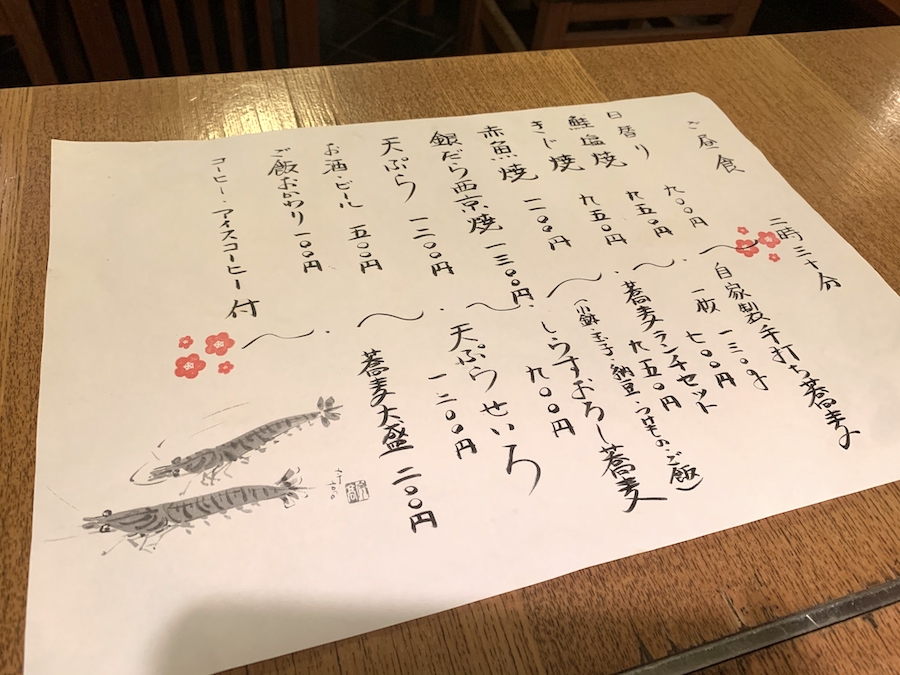 ご昼食
二時三十分
日替り 九〇〇円
鮭塩焼 九五〇円
きじ焼 九五〇円
赤魚焼 一二〇〇円
銀だら西京焼 一三〇〇円
天ぷら 一二〇〇円
お酒・ビール 五〇〇円
ご飯おかわり 一〇〇円
コーヒー・アイスコーヒー付
自家製手打ち蕎麦
一三〇g
一枚 七〇〇円
蕎麦ランチセット
九五〇円
(小鉢・玉子・納豆・つけもの・ご飯)
しらすおろし蕎麦
九〇〇円
天ぷらせいろ
一二〇〇円
蕎麦大盛 二〇〇円